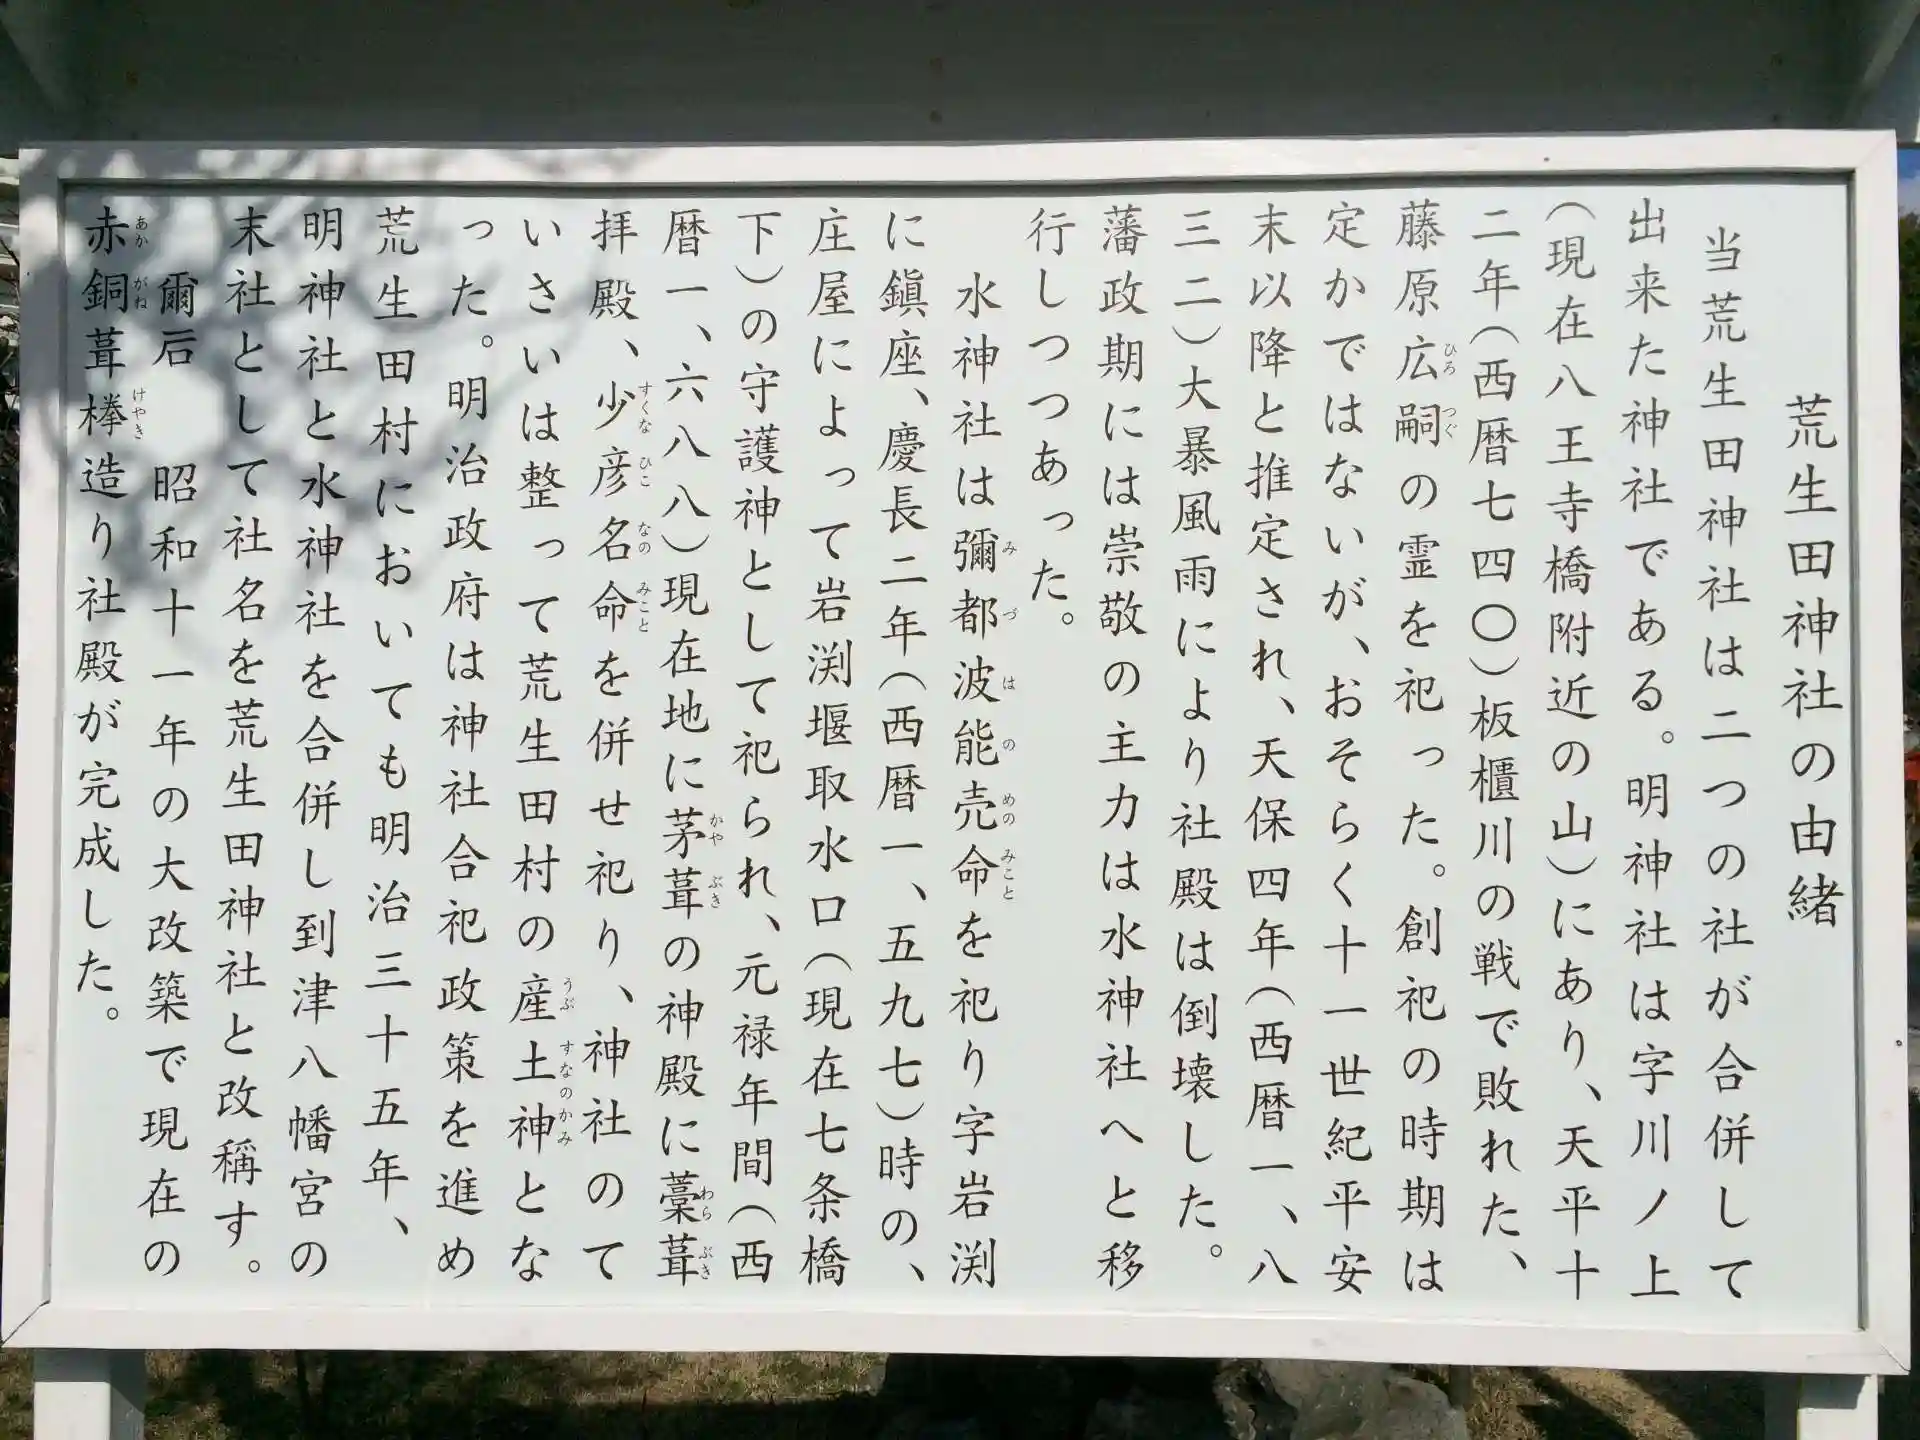 荒生田神社の由緒
当荒生田神社は二つの社が合併して
出来た神社である。明神社は字川ノ上
(現在八王寺橋附近の山)にあり、天平十
二年(西暦七四〇)板櫃川の戦で敗れた、
藤原広嗣の霊を祀った。創祀の時期は
定かではないが、おそらく十一世紀平安
末以降と推定され、天保四年(西暦一、八
三二)大暴風雨により社殿は倒壊した。
藩政期には崇敬の主力は水神社へと移
行しつつあった。
水神社は彌都波能売命を祀り字岩渕
に鎮座、慶長二年(西暦一、五九七)時の、
庄屋によって岩渕堰取水口(現在七条橋
下)の守護神として祀られ、元禄年間(西
暦一、六八八)現在地に茅葺の神殿に藁葺
拝殿、少彦名命を併せ祀り、神社のて
いさいは整って荒生田村の産土神とな
った。明治政府は神社合祀政策を進め
荒生田村においても明治三十五年、
明神社と水神社を合併し到津八幡宮の
末社として社名を荒生田神社と改稱す。
爾后 昭和十一年の大改築で現在の
赤銅葺欅造り社殿が完成した。